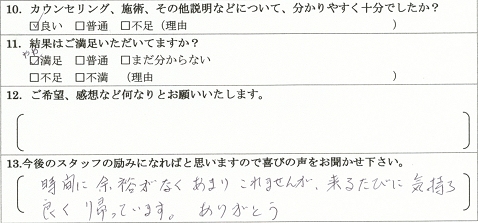 10. カウンセリング、施術、その他説明などについて、分かりやすく十分でしたか？
☑良い　□普通　□不足（理由　　　　　　　　　　）
11. 結果はご満足いただいてますか？
やや
☑満足　□普通　□まだ分からない
□不足　□不満　（理由　　　　　　　　　　）
12. ご希望、感想など何なりとお願いいたします。
13.今後のスタッフの励みになればと思いますので喜びの声をお聞かせ下さい。
時間に余裕がなくあまりこれませんが、来るたびに気持ち
良く帰っています。ありがとう